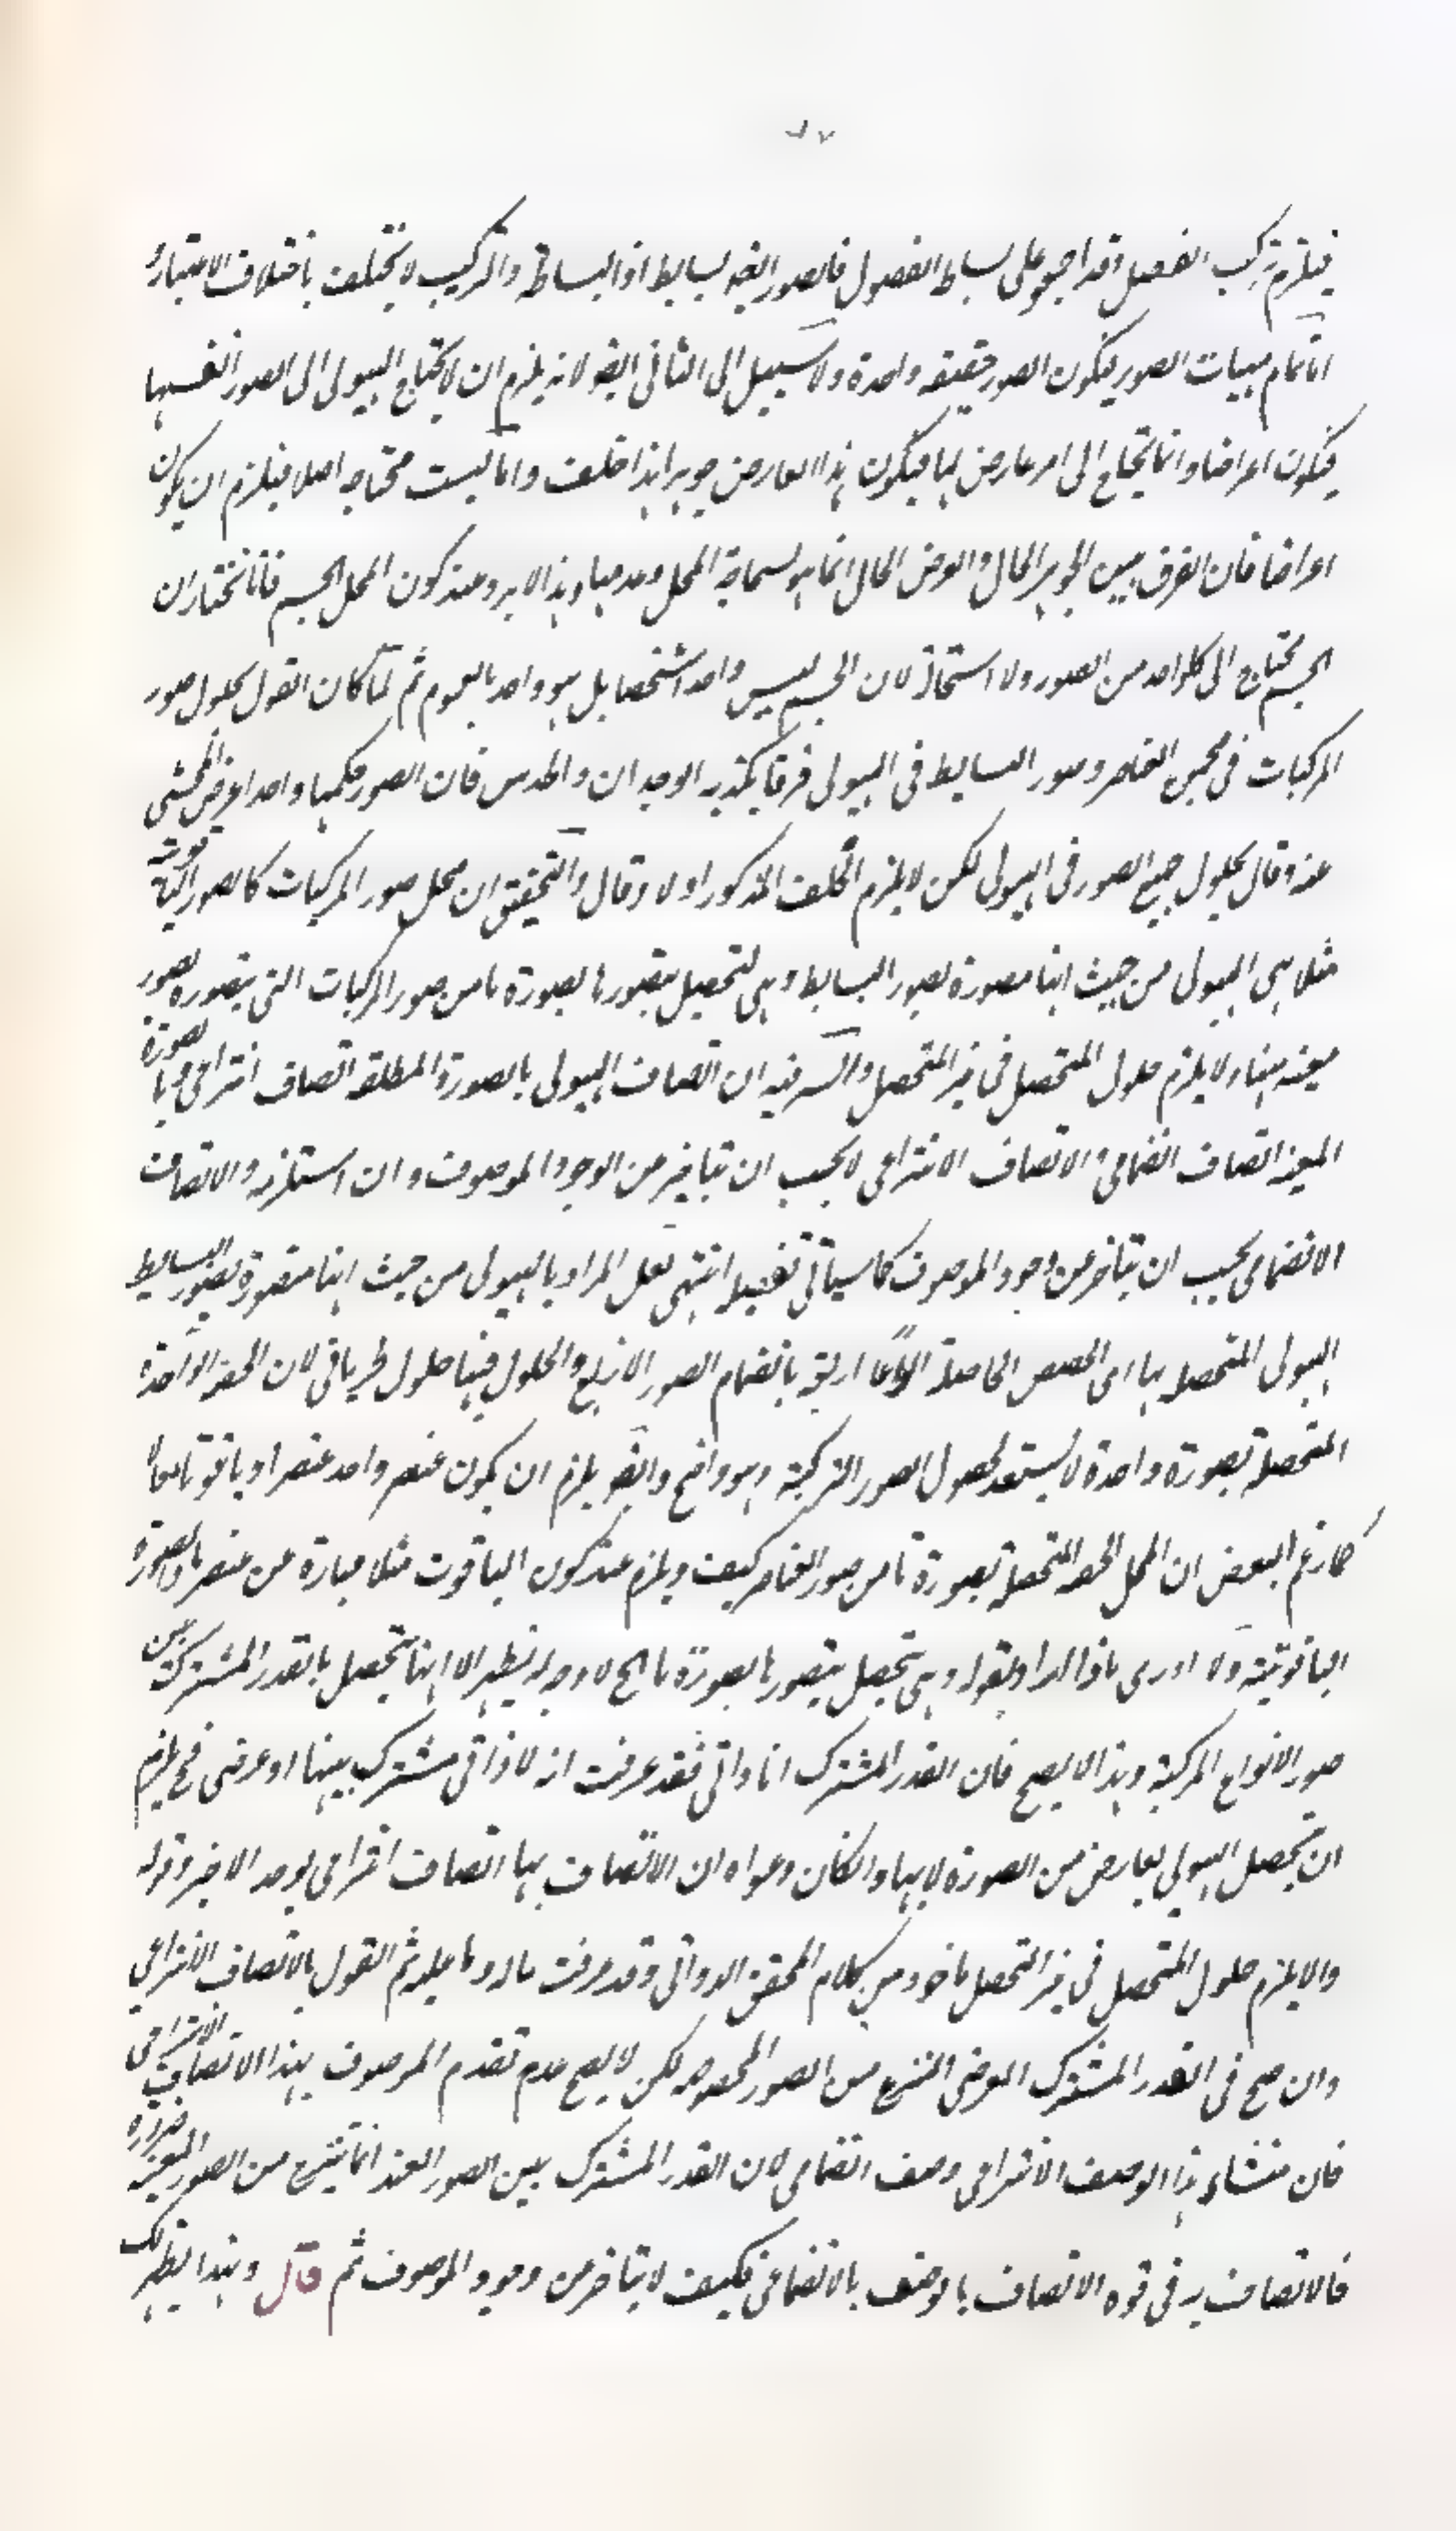 فيلزم تركب الفصل وقد اجمعوا على بساطة الفصول فالصور ايضا بسايط اذ البساطة والتركيب لا يختلف باختلاف الاعتبار
اما تمام مهيات الصور فيكون الصور حقيقة واحدة ولا سبيل الى الثاني ايضا لانه يلزم ان لا يحتاج الهيولى الى الصور انفسها
فيكون اعراضا وانما يحتاج الى امر عارض لها فيكون هذا العارض جوهرا هذا خلف واما ليست محتاجة اصلا فيلزم ان يكون
اعراضا فان الفرق بين الجوهر الحال والعرض الحال انما هو بحاجة المحل وعدمها وهذا لا يرد عند كون المحل الجسم فانا نختار ان
الجسم يحتاج الى كل واحد من الصور ولا استحالة لان الجسم ليس واحدا شخصا بل هو واحد بالعموم ثم لما كان القول بحلول صور
المركبات في العناصر وصور البسايط في الهيولى فرقا يكذبه الوجدان والحدس فان الصور حكمها واحد اعرض المحشي
عنه وقال بحلول جميع الصور في الهيولى لكن لا يلزم الخلف المذكور اولا وقال والتحقيق ان محل صور المركبات كالصورة الياقوتية
مثلا هي الهيولى من حيث انها مصورة بصور البسايط وهي تتحصل بتصورها بصورة ما من صور المركبات التي يتصور بصور
معينة منها ولا يلزم حلول المتحصل في غير المتحصل والسر فيه ان اتصاف الهيولى بالصورة المطلقة اتصاف انتزاعي وبالصورة
المعينة اتصاف انضمامي والاتصاف الانتزاعي لا يجب ان يتاخر من الوجود الموصوف وان استلزمه والاتصاف
الانضمامي يجب ان يتاخر عن وجود الموصوف كما سياتي تفصيله انتهى لعل المراد بالهيولى من حيث انها متصورة بصور البسايط
الهيولى المتحصلة بها اى الحصص الحاصلة انواعا اربعة بانضمام الصور الاربع والحلول فيها حلول طرياني لان الحصة الواحدة
المتحصلة بصورة واحدة لا يستعد لحصول الصور التركيبية وهو واضح وايضا يلزم ان يكون عنصر واحد عنصرا وياقوتا معا
كما زعم البعض ان المحل الحصة المتحصلة بصورة ما من صور العناصر كيف ويلزم عند كون الياقوت مثلا عبارة عن عنصر ما والصورة
الياقوتية ولا ادرى ماذا اراد بقوله وهي تتحصل بتصورها بصورة ما الخ لا وجه له يظهر الا انها تتحصل بالقدر المشترك بين
صور الانواع المركبة وهذا لا يصح فان القدر المشترك اما ذاتي فقد عرفت انه لا ذاتي مشترك بينها او عرضي فح يلزم
ان يتحصل الهيولى بعارض من الصورة لا بها وان كان دعواه ان الاتصاف بها اتصاف انتزاعي يوجد الاخير وقوله
والا يلزم حلول المتحصل في غير المتحصل ماخوذ من كلام المحقق الدواني وقد عرفت ماله وما عليه ثم القول بالاتصاف الانتزاعي
وان صح في القدر المشترك العرضي المنتزع من الصور المخصوصة لكن لا يصح عدم تقدم الموصوف بهذا الاتصاف الانتزاعي
فان منشاء هذا الوصف الانتزاعي وصف انضمامي لان القدر المشترك بين الصور العنده انما ينتزع من الصور المعينة ضرورة
فالاتصاف به في قوة الاتصاف بالوصف بالانضماعي فكيف لا يتاخر عن وجود الموصوف ثم قال وبهذا يظهر لك